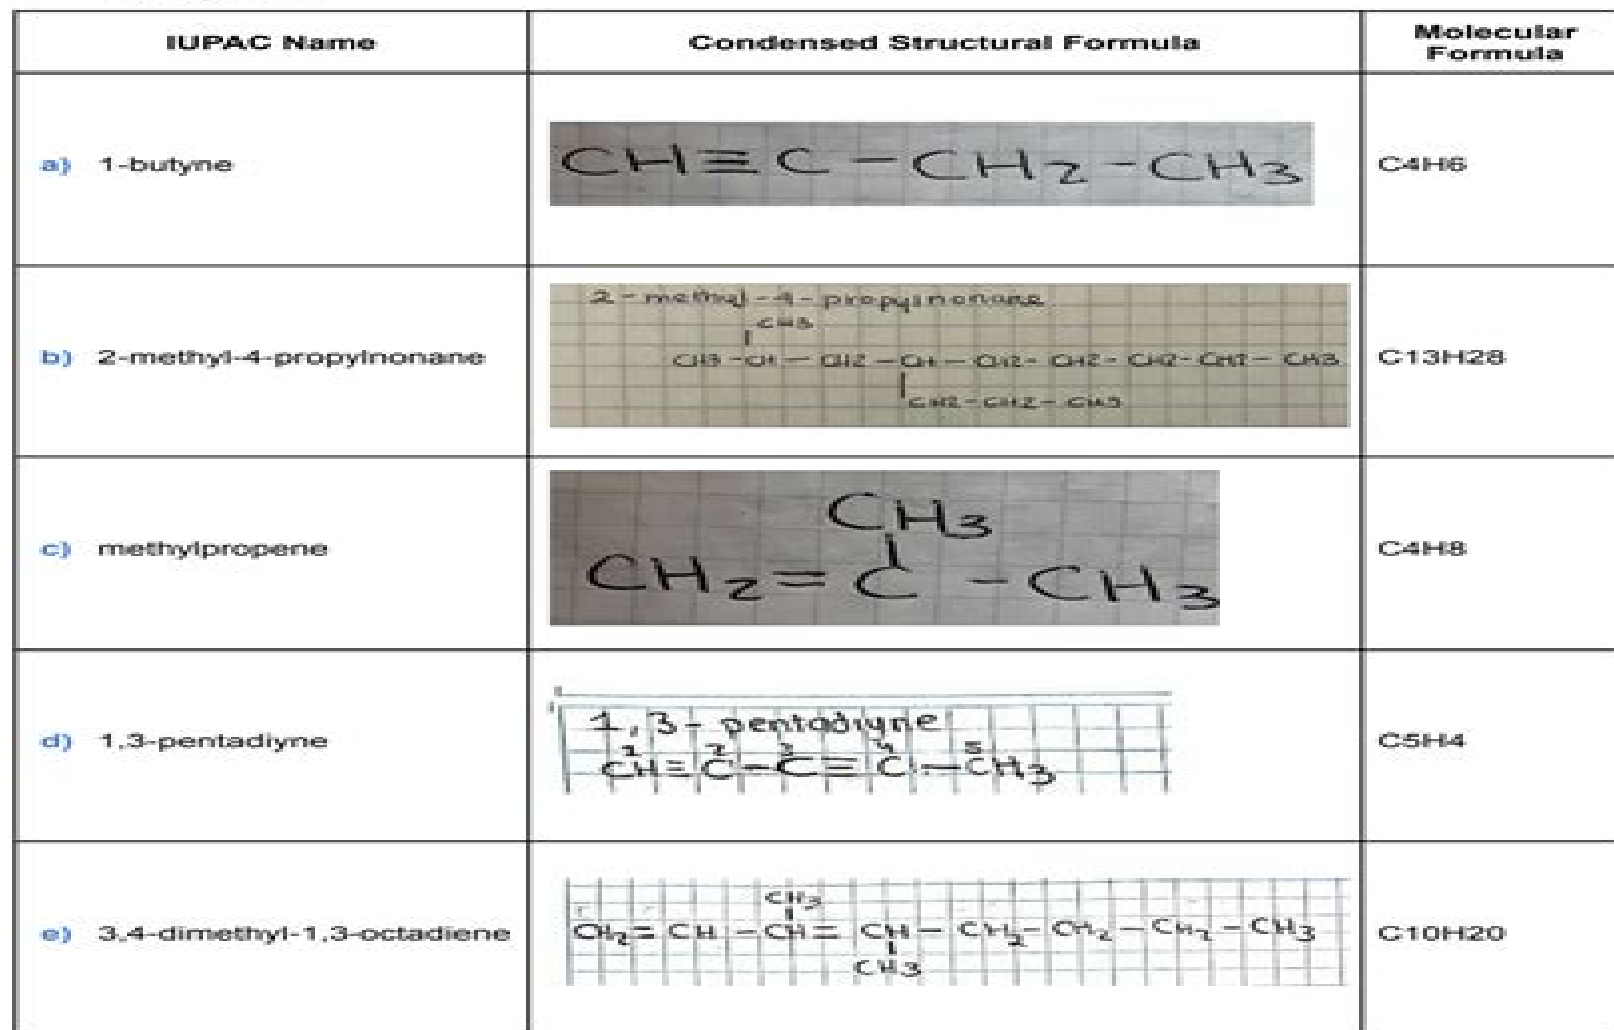 IUPAC Name
Condensed Structural Formula
Molecular
Formula
a) 1-butyne
CH≡C-CH2-CH3
C4H6
b) 2-methyl-4-propylnonane
2-methyl-4-propylnonane
CH3
CH3-CH-CH2-CH-CH2-CH2-CH2-CH2-CH3
CH2-CH2-CH3
C13H28
c) methylpropene
CH3
CH2=C-CH3
C4H8
d) 1,3-pentadiyne
1,3-pentadiyne
CH≡C-C≡C-CH3
C5H4
e) 3,4-dimethyl-1,3-octadiene
CH3
CH2=CH-CH=CH-CH2-CH2-CH2-CH3
CH3
C10H20